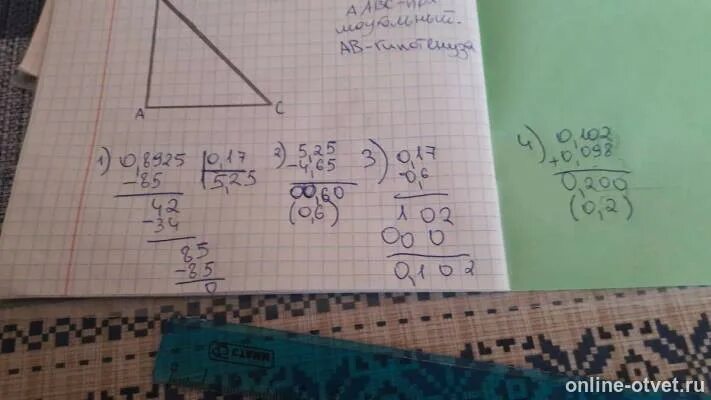 Δ ABC-пря
моугольный.
AB-гипотенуза
A
C
1) 0,8925 | 0,17
-85 5,25
42
-34
85
-85
0
2) 5,25
-4,65
00,60
(0,6)
3) 0,17
0,6
102
000
0,102
4) 0,102
+0,098
0,200
(0,2)
online-otvet.ru